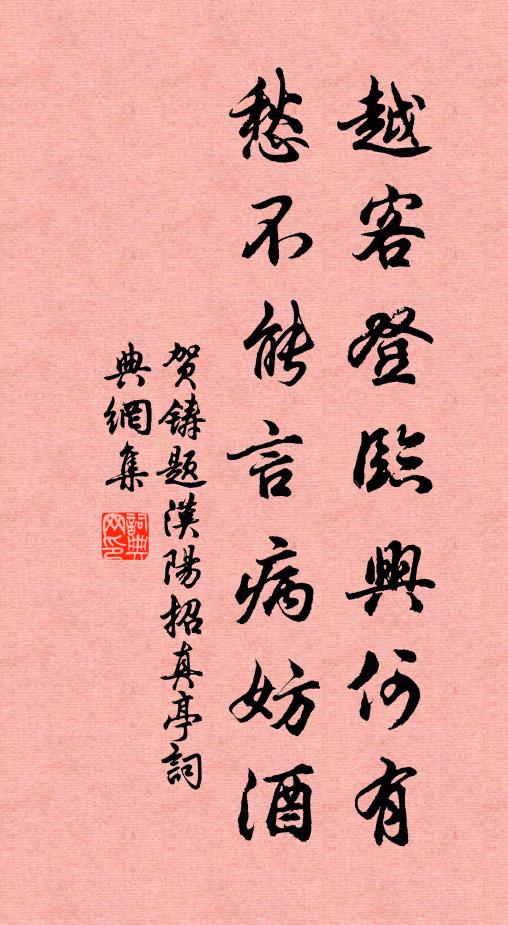 越客登臨興何有
愁不能言病妨酒
贺鑄题漢陽招真亭詞
典網集
詞典网印